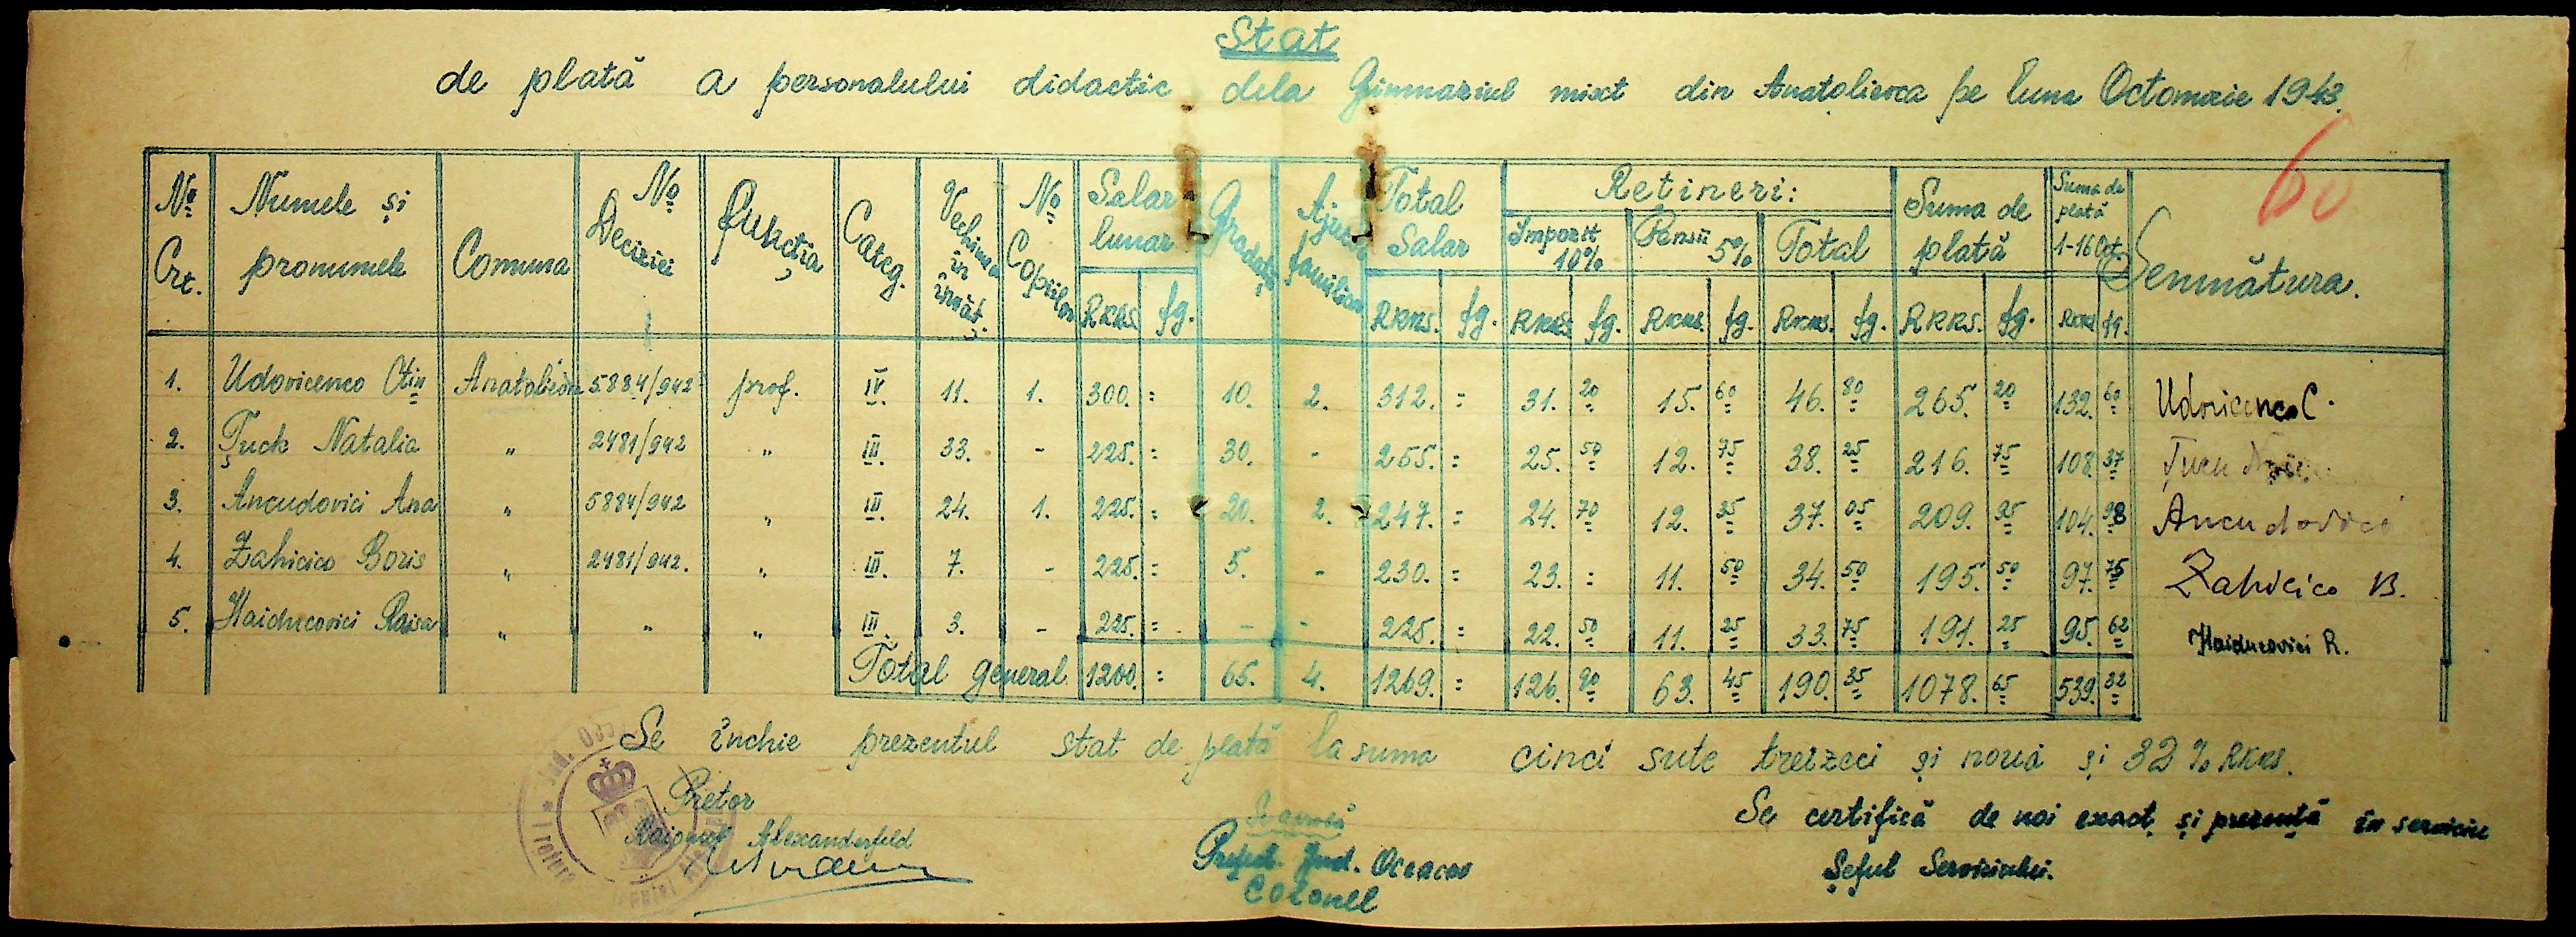 Stat
de plată a personalului didactic dela Gimnaziul mixt din Anatolievca pe luna Octomvrie 1943.
60
No Crt. | Numele și pronumele | Comuna | No Deciziei | Funcția | Categ. | Vechimea în învăț. | No Copiilor | Salar lunar RKKS. fg. | Gradație | Ajutor familiar | Total Salar RKKS. fg. | Retineri: Impozit 10% RKKS. fg. | Pensii 5% RKKS. fg. | Total RKKS. fg. | Suma de plată RKKS. fg. | Suma de plată 1-16 Oct. RKKS fg. | Semnătura.
1. Udovicenco Ctin Anatoliev 5884/942 prof. IV. 11. 1. 300. = 10. 2. 312. = 31. 20 15. 60 46. 80 265. 20 132. 60 Udovicenco C.
2. Țuck Natalia „ 2481/942 „ III. 33. - 225. = 30. - 255. = 25. 50 12. 75 38. 25 216. 75 108. 37
3. Ancudovici Ana „ 5884/942 „ III. 24. 1. 225. = 20. 2. 247. = 24. 70 12. 35 37. 05 209. 95 104. 98 Ancudovici
4. Zahicico Boris „ 2481/942. „ III. 7. - 225. = 5. - 230. = 23. = 11. 50 34. 50 195. 50 97. 75 Zahicico B.
5. Haiducovici Raisa „ „ „ III. 3. - 225. = - - 225. = 22. 50 11. 25 33. 75 191. 25 95. 62 Haiducovici R.
Total general 1200. = 65. 4. 1269. = 126. 90 63. 45 190. 35 1078. 65 539. 32
Se închie prezentul stat de plată la suma cinci sute treizeci și nouă și 32 % RKKS.
Pretor
Raionul Alexanderfeld
Prefect. Jud. Oceacov
Colonel
Se certifică de noi exact și prezență în serviciu
Șeful Serviciului.